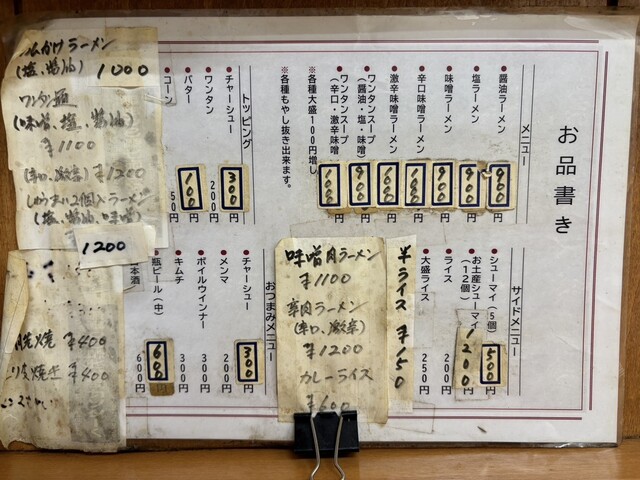 お品書き
メニュー
●醤油ラーメン 900円
●塩ラーメン 900円
●味噌ラーメン 900円
●辛口味噌ラーメン
●激辛味噌ラーメン
●ワンタンスープ
(醤油・塩・味噌)
●ワンタンスープ
(辛口・激辛味噌)
※各種大盛100円増し
※各種もやし抜き出来ます。
トッピング
●チャーシュー 300円
●ワンタン 200円
●バター 100円
コーン 50円
サイドメニュー
●シューマイ(5個) 500円
●お土産シューマイ
(12個) 1200
●ライス 200円
●大盛ライス 250円
半ライス ¥150
味噌肉ラーメン
¥1100
辛肉ラーメン
(辛口、激辛)
¥1200
カレーライス
¥600
おつまみメニュー
●チャーシュー 300円
●メンマ 200円
●ボイルウインナー 300円
●キムチ 300円
●瓶ビール(中) 600円
本酒 600円
かけラーメン
(塩、醤油) 1000
ワンタン麺
(味噌、塩、醤油)
¥1100
(辛口、激辛) ¥1200
しゅうまい2個入ラーメン
(塩、醤油、味噌)
1200
焼 ¥400
焼き ¥400